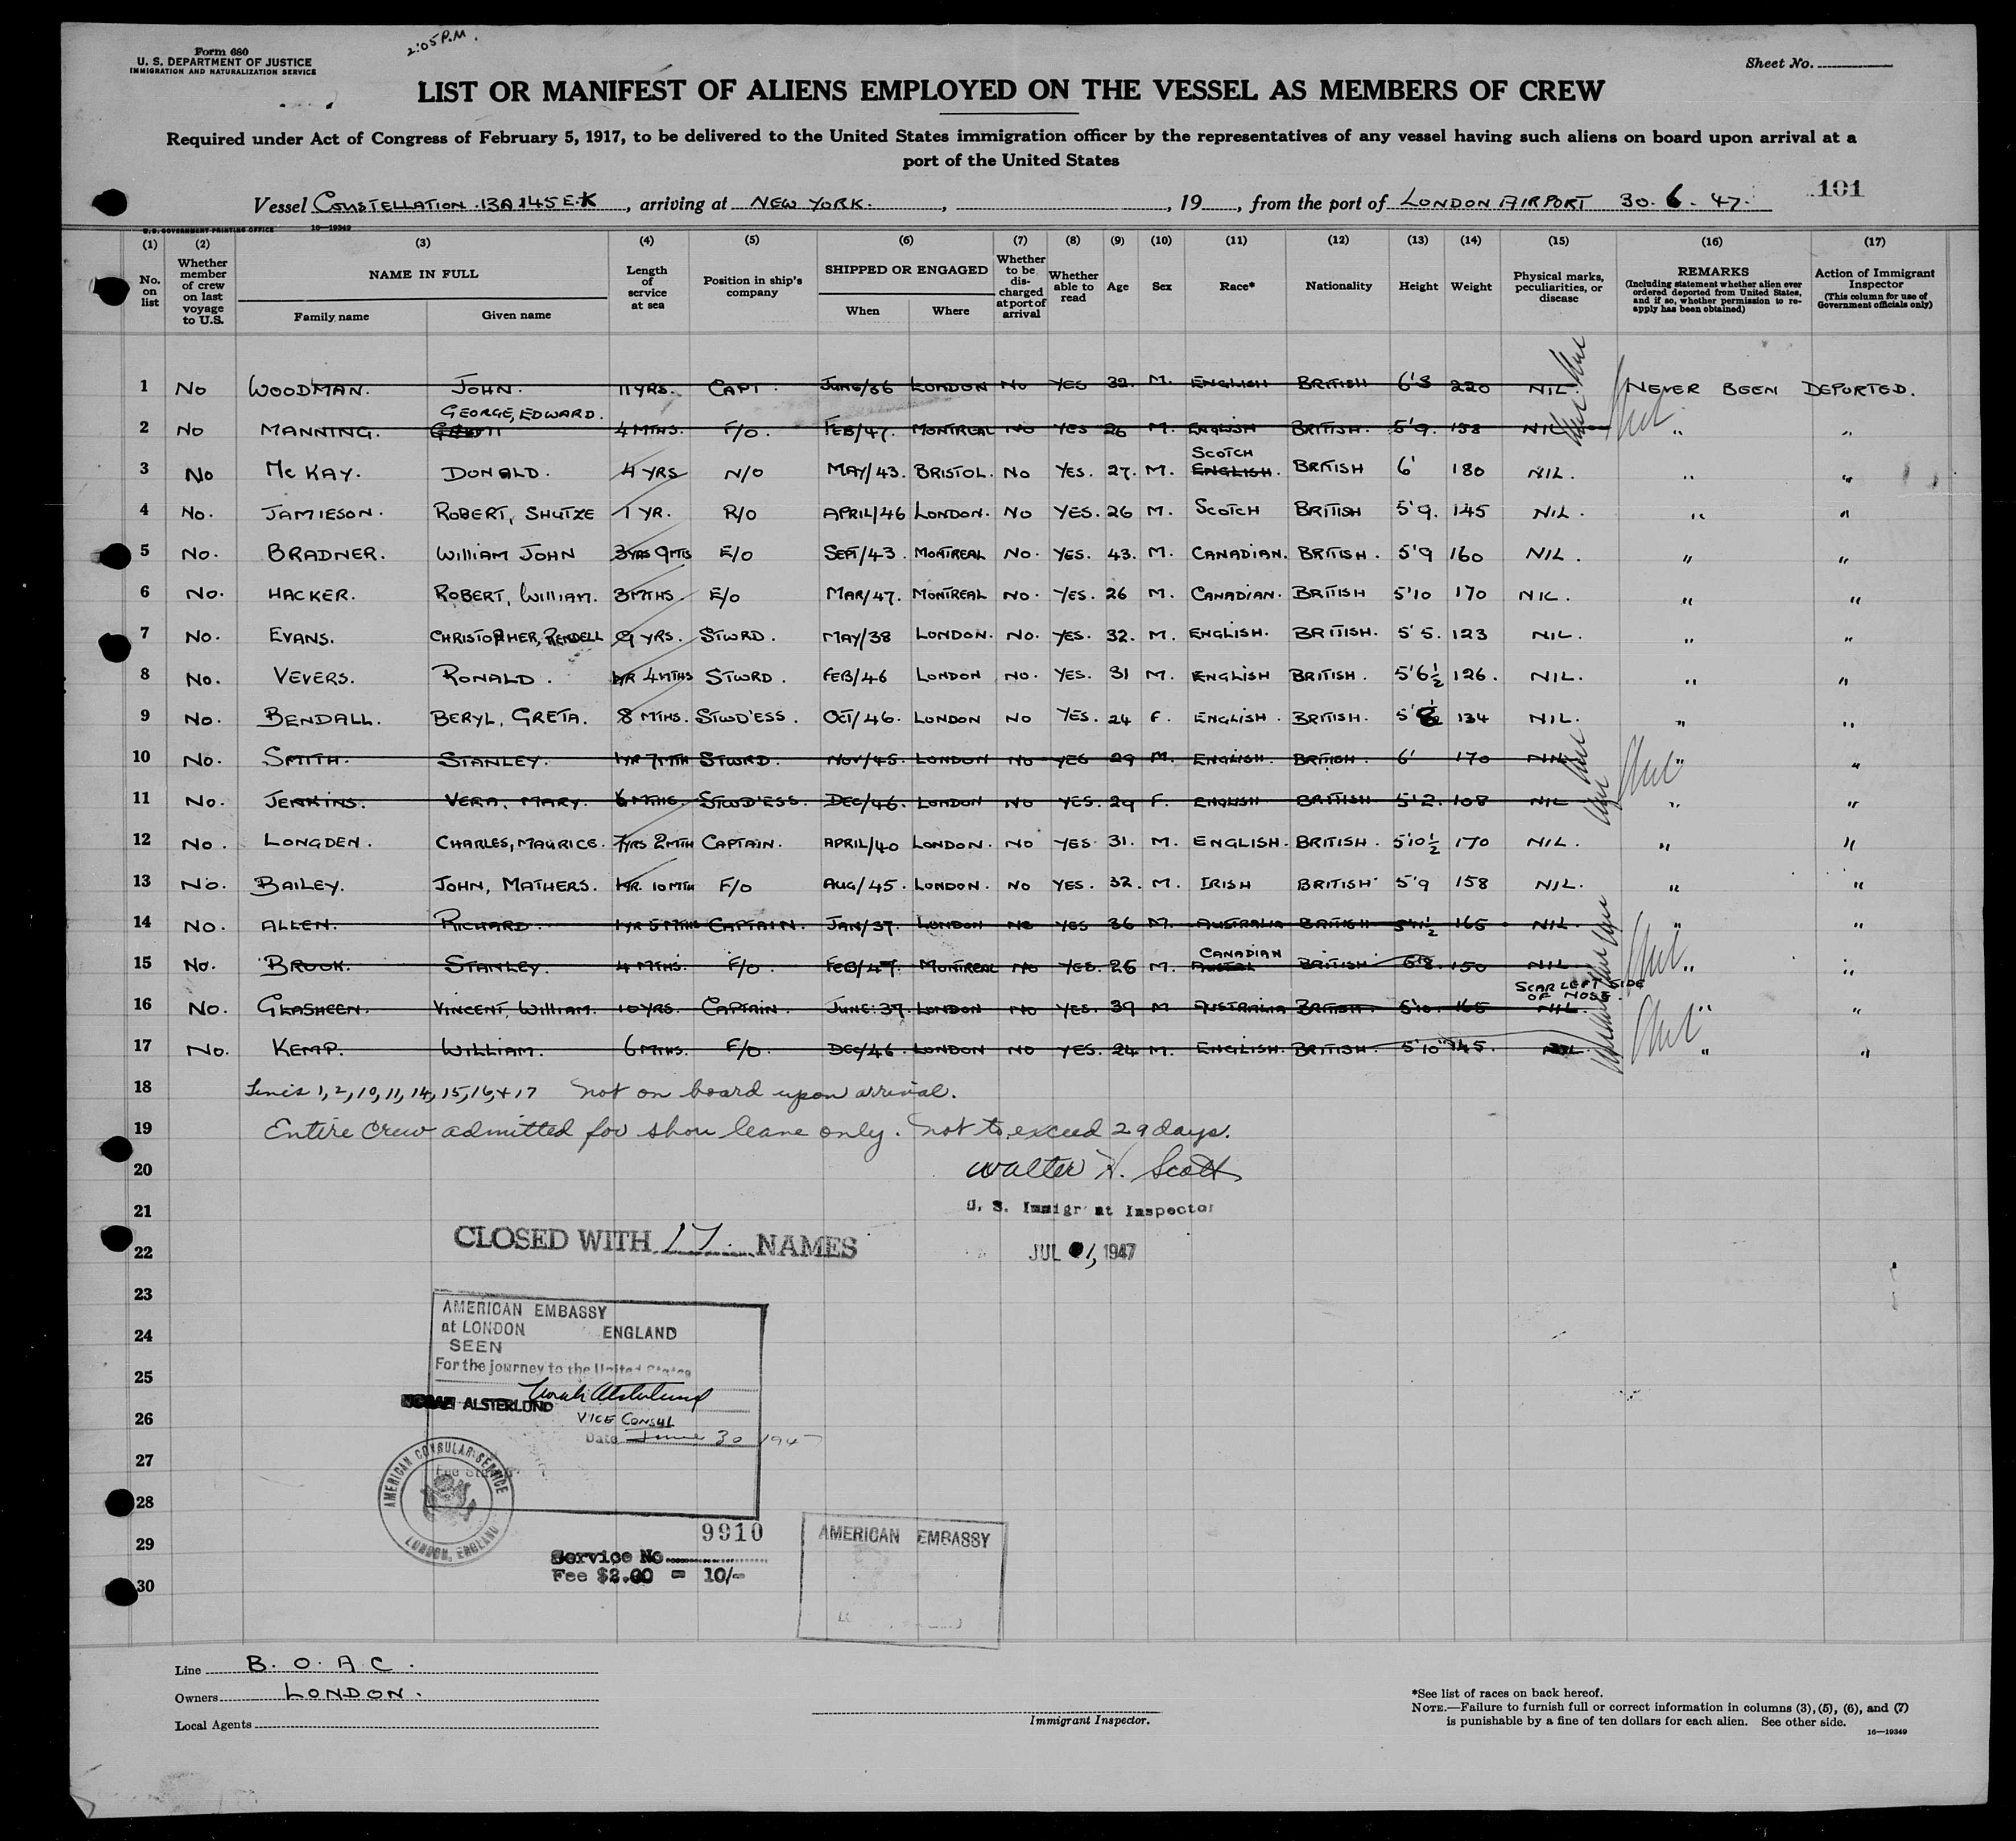 Form 680
U. S. DEPARTMENT OF JUSTICE
IMMIGRATION AND NATURALIZATION SERVICE
2:05 P.M.
Sheet No.
LIST OR MANIFEST OF ALIENS EMPLOYED ON THE VESSEL AS MEMBERS OF CREW
Required under Act of Congress of February 5, 1917, to be delivered to the United States immigration officer by the representatives of any vessel having such aliens on board upon arrival at a
port of the United States
101
Vessel CONSTELLATION, arriving at NEW YORK., , 19 , from the port of LONDON AIRPORT 30. 6. 47.
U.S. GOVERNMENT PRINTING OFFICE 16—19349
(1) (2) (3) (4) (5) (6) (7) (8) (9) (10) (11) (12) (13) (14) (15) (16) (17)
No. on list
Whether member of crew on last voyage to U.S.
NAME IN FULL
Family name Given name
Length of service at sea
Position in ship's company
SHIPPED OR ENGAGED
When Where
Whether to be discharged at port of arrival
Whether able to read
Age
Sex
Race*
Nationality
Height
Weight
Physical marks, peculiarities, or disease
REMARKS
(Including statement whether alien ever ordered deported from United States, and if so, whether permission to re-apply has been obtained)
Action of Immigrant Inspector
(This column for use of Government officials only)
1 No WOODMAN. JOHN. 11 YRS. CAPT. JUNE/36 LONDON No YES 32. M. ENGLISH BRITISH 6'3 220 NIL. NEVER BEEN DEPORTED.
GEORGE, EDWARD.
2 No MANNING. 4 MTHS. F/O. FEB/47. MONTREAL NO YES 26 M. ENGLISH BRITISH. 5'9. 158 NIL " "
SCOTCH
3 No McKAY. DONALD. 4 YRS N/O MAY/43. BRISTOL. No YES. 27. M. ENGLISH. BRITISH 6' 180 NIL. " "
4 No. JAMIESON. ROBERT, SHUTZE 1 YR. R/O APRIL/46 LONDON. NO YES. 26 M. SCOTCH BRITISH 5'9. 145 NIL. " "
5 No. BRADNER. WILLIAM JOHN 3YRS 9MTS E/O SEPT/43. MONTREAL No. YES. 43. M. CANADIAN. BRITISH. 5'9 160 NIL. " "
6 No. HACKER. ROBERT, WILLIAM. 3MTHS. E/O MAR/47. MONTREAL NO. YES. 26 M. CANADIAN. BRITISH 5'10 170 NIL. " "
7 No. EVANS. CHRISTOPHER, RENDELL 9 YRS. STWRD. MAY/38 LONDON. No. YES. 32. M. ENGLISH. BRITISH. 5'5. 123 NIL. " "
8 No. VEVERS. RONALD. 1YR 4MTHS STWRD. FEB/46 LONDON No. YES. 31 M. ENGLISH BRITISH. 5'6½ 126. NIL. " "
9 No. BENDALL. BERYL, GRETA. 8 MTHS. STWD'ESS. OCT/46. LONDON NO YES. 24 F. ENGLISH. BRITISH. 134 NIL. " "
10 No. SMITH. STANLEY. 1YR 7MTH STWRD. NOV/45. LONDON NO YES 29 M. ENGLISH. BRITISH. 6' 170 NIL " "
11 No. JENKINS. VERA, MARY. 6 MTHS. STWD'ESS. DEC/46. LONDON NO YES. 29 F. ENGLISH BRITISH 5'2. 108 NIL " "
12 No. LONGDEN. CHARLES, MAURICE. 7YRS 2MTH CAPTAIN. APRIL/40 LONDON. NO YES. 31. M. ENGLISH. BRITISH. 5'10½ 170 NIL. " "
13 No. BAILEY. JOHN, MATHERS. 1YR. 10MTH F/O AUG/45. LONDON. NO YES. 32. M. IRISH BRITISH 5'9 158 NIL. " "
14 No. ALLEN. RICHARD. CAPTAIN. JAN/37. LONDON NO YES 36 M. AUSTRALIA BRITISH 5'11½ 165. NIL. " "
CANADIAN
15 No. BROOK. STANLEY. 4 MTHS. F/O. FEB/47. MONTREAL NO YES. 26 M. BRITISH 150 NIL " "
SCAR LEFT SIDE
OF NOSE.
16 No. GLASHEEN. VINCENT, WILLIAM. 10YRS. CAPTAIN. JUNE. 37. LONDON NO YES. 39 M AUSTRALIA BRITISH. 5'10. 165 NIL. " "
17 No. KEMP. WILLIAM. 6 MTHS. F/O. DEC/46. LONDON NO YES. 24 M. ENGLISH. BRITISH. 5'10" 145. NIL. " "
18 Lines 1, 2, 10, 11, 14, 15, 16, + 17 not on board upon arrival.
19 Entire crew admitted for shore leave only. Not to exceed 29 days.
20 Walter H. Scott
21 U. S. Immigrant Inspector
22 CLOSED WITH 17 NAMES JUL 1, 1947
23
AMERICAN EMBASSY
24 at LONDON ENGLAND
SEEN
For the journey to the United States
25
ALSTERLUND
26 VICE CONSUL
Date June 30 1947
27
AMERICAN CONSULAR SERVICE
LONDON, ENGLAND
28
9910
AMERICAN EMBASSY
29
Service No.
Fee $2.00 = 10/-
30
Line B. O. A. C.
Owners LONDON.
Local Agents
Immigrant Inspector.
*See list of races on back hereof.
NOTE.—Failure to furnish full or correct information in columns (3), (5), (6), and (7)
is punishable by a fine of ten dollars for each alien. See other side.
16—19349